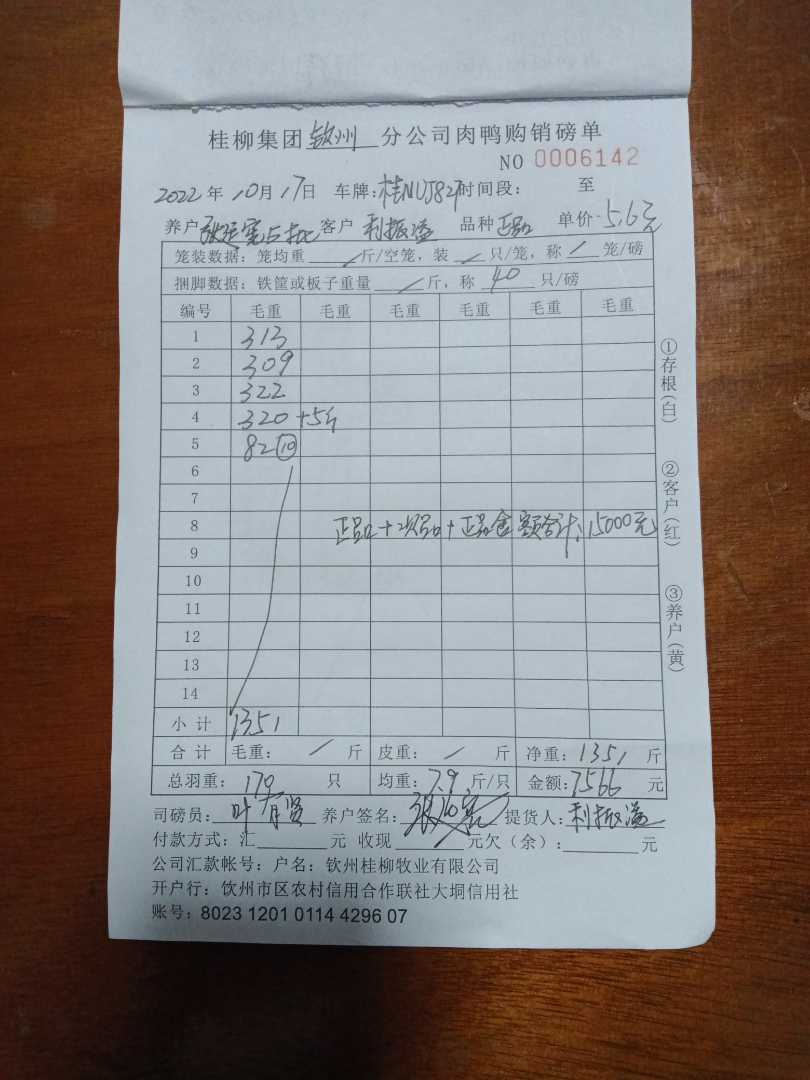 桂柳集团 钦州 分公司肉鸭购销磅单
NO 0006142
2022 年 10月 17日 车牌:桂NUJ827 时间段: 至
养户 客户 利振溢 品种 正品 单价 5.6元
笼装数据: 笼均重 / 斤/空笼, 装 / 只/笼, 称 / 笼/磅
捆脚数据: 铁筐或板子重量 / 斤, 称 40 只/磅
编号 毛重 毛重 毛重 毛重 毛重 毛重
1 313
2 309
3 322
4 320+5斤
5 82⑩
6
7
8 正品+次品+正品金额合计:15000元
9
10
11
12
13
14
小计 1351
合计 毛重: / 斤 皮重: / 斤 净重: 1351 斤
总羽重: 170 只 均重: 7.9 斤/只 金额: 7566 元
司磅员: 叶有贤 养户签名: 提货人: 利振溢
付款方式: 汇 元 收现 元欠(余): 元
公司汇款帐号: 户名: 钦州桂柳牧业有限公司
开户行: 钦州市区农村信用合作联社大垌信用社
账号: 8023 1201 0114 4296 07
①存根(白)
②客户(红)
③养户(黄)